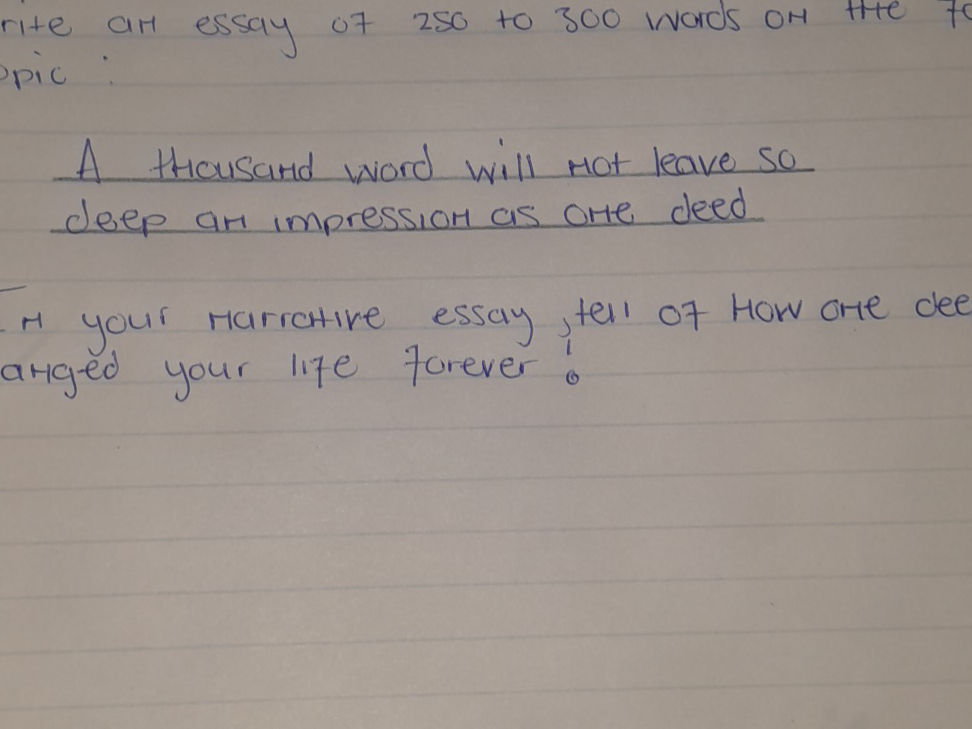 rite an essay of 250 to 300 words on the fo
opic :
A thousand word will not leave so
deep an impression as one deed
In your narrative essay , tell of How one dee
anged your life forever !